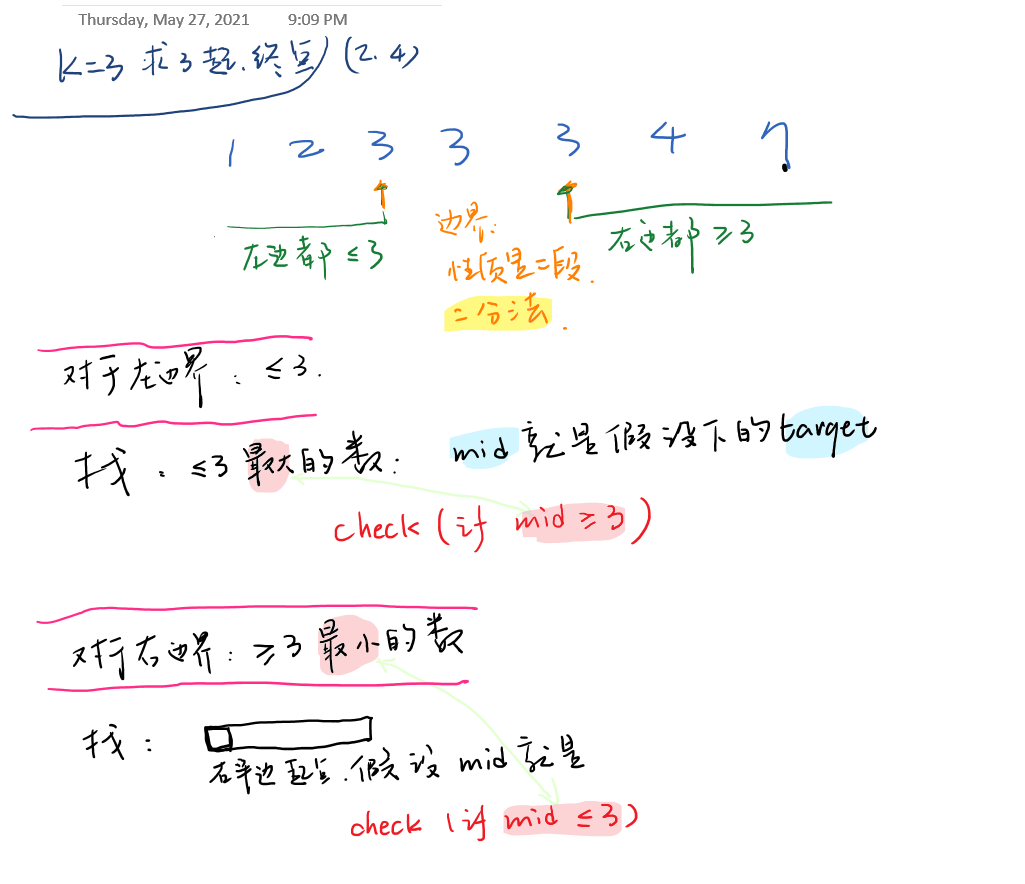 Thursday, May 27, 2021 9:09 PM
k=3 求3起.终点 (2.4)
1 2 3 3 3 4 7
左边都 ≤ 3
边界:
右边都 ≥ 3
性质是二段.
二分法.
对于左边界: ≤ 3.
找: ≤3 最大的数: mid 就是假设下的target
check (if mid ≥ 3)
对于右边界: ≥ 3 最小的数
找:
右半边起点.假设 mid 就是
check (if mid ≤ 3)